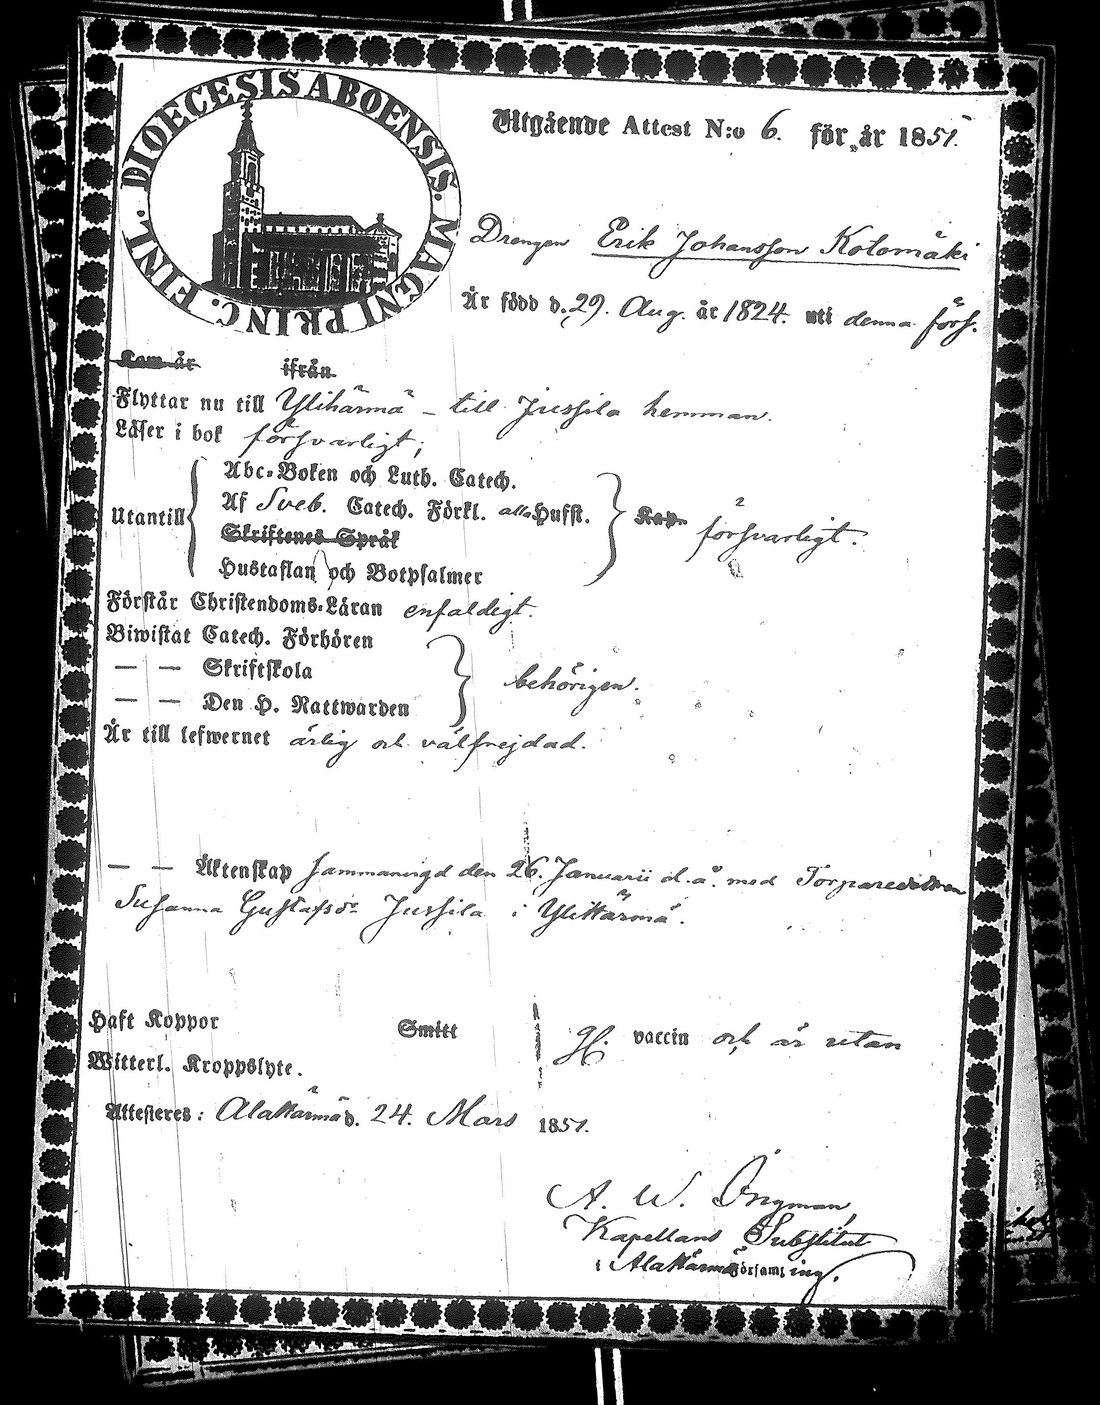 DIOECESIS ABOENSIS. MAGNI PRINC. FINL.
Utgående Attest N:o 6. för år 1851.
Drengen Erik Johansson Kolomäki
Är född d. 29. Aug. år 1824. uti denna förs.
Kom år ifrån
Flyttar nu till Ylihärmä - till Jussila hemman.
Läser i bok försvarligt;
Abc-Boken och Luth. Catech.
Utantill Af Sveb. Catech. Förkl. alla Hufst. Kap. försvarligt.
Skriftenes Språk
Hustaflan och Botpsalmer
Förstår Christendoms-Läran enfaldigt.
Biwistat Catech. Förhören
— — Skriftskola behörigen.
— — Den H. Nattwarden
Är till lefwernet ärlig och välfrejdad.
— — Äktenskap sammanvigd den 26. Januarii d.å. med
Susanna Gustafsdr Jussila i Ylihärmä.
Haft Koppor Smitt gl. vaccin och är utan
Witterl. Kroppslyte.
Attesteres: Alahärmä d. 24. Mars 1851.
A. W. Öngman,
Kapellans Substitut
i Alahärmä Församling.